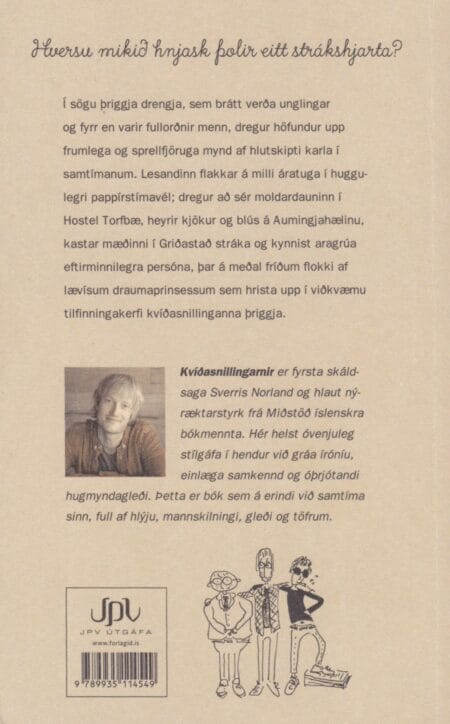 Hversu mikið hnjask þolir eitt strákshjarta?
Í sögu þriggja drengja, sem brátt verða unglingar
og fyrr en varir fullorðnir menn, dregur höfundur upp
frumlega og sprellfjöruga mynd af hlutskipti karla í
samtímanum. Lesandinn flakkar á milli áratuga í huggu-
legri pappírstímavél; dregur að sér moldardauninn í
Hostel Torfbæ, heyrir kjökur og blús á Aumingjahælinu,
kastar mæðinni í Griðastað stráka og kynnist aragrúa
eftirminnilegra persóna, þar á meðal fríðum flokki af
lævísum draumaprinsessum sem hrista upp í viðkvæmu
tilfinningakerfi kvíðasnillinganna þriggja.
Kvíðasnillingarnir er fyrsta skáld-
saga Sverris Norland og hlaut ný-
ræktarstyrk frá Miðstöð íslenskra
bókmennta. Hér helst óvenjuleg
stílgáfa í hendur við gráa íróníu,
einlæga samkennd og óþrjótandi
hugmyndagleði. Þetta er bók sem á erindi við samtíma
sinn, full af hlýju, mannskilningi, gleði og töfrum.
JPV
JPV ÚTGÁFA
www.forlagid.is
9 789935 114549